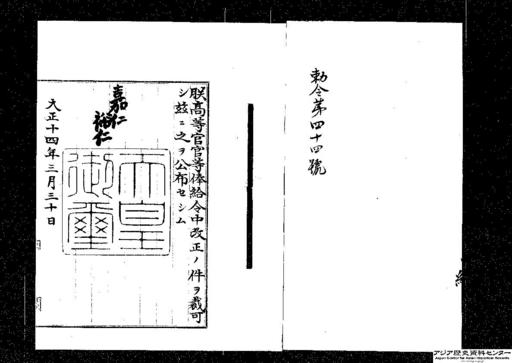 勅令第四十四號
朕高等官官等俸給令中改正ノ件ヲ裁可
シ茲ニ之ヲ公布セシム
嘉仁
裕仁
天皇
御璽
大正十四年三月三十日
アジア歴史資料センター
Japan Center for Asian Historical Records